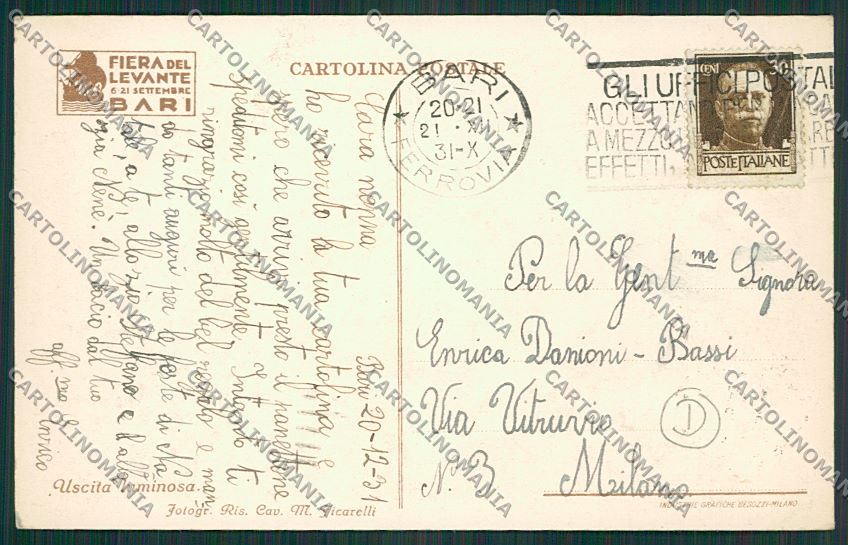 FIERA DEL
LEVANTE
6-21 SETTEMBRE
BARI
CARTOLINA POSTALE
BARI
20-21
21 · XII
31-X
FERROVIA
GLI UFFICI POSTALI
ACCETTANO
A MEZZO
EFFETTI,
CENT 30
POSTE ITALIANE
Bari 20-12-31
Cara nonna
ho ricevuto la tua cartolina e
spero che arrivi presto il panettone
speditomi così gentilmente. Intanto ti
ringrazio molto del bel regalo e man
do tanti auguri per le feste di Na
tale, a te allo zio Stefano e alla
zia Nene. Un bacio dal tuo
aff.mo Enrico
Per la Gent.ma Signora
Enrica Danioni-Bassi
Via Vitruvio
N. 3
Milano
Uscita luminosa.
Fotogr. Ris. Cav. M. Ficarelli
INDUSTRIE GRAFICHE BESOZZI-MILANO
CARTOLINOMANIA